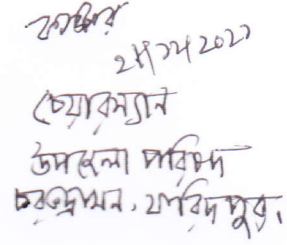 ২৫/১২/২০২১
চেয়ারম্যান
উপজেলা পরিষদ
চরভদ্রাসন, ফরিদপুর।